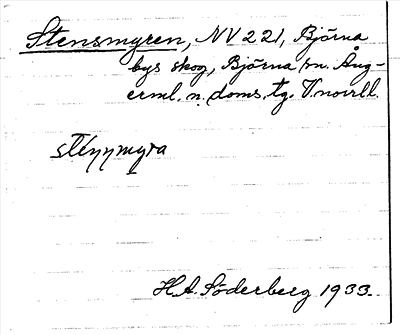 Stensmyren, NV 221, Björna
bys skog, Björna sn. Ång-
erml. n. doms. tg. V.norrl.
H.A. Söderberg 1933.